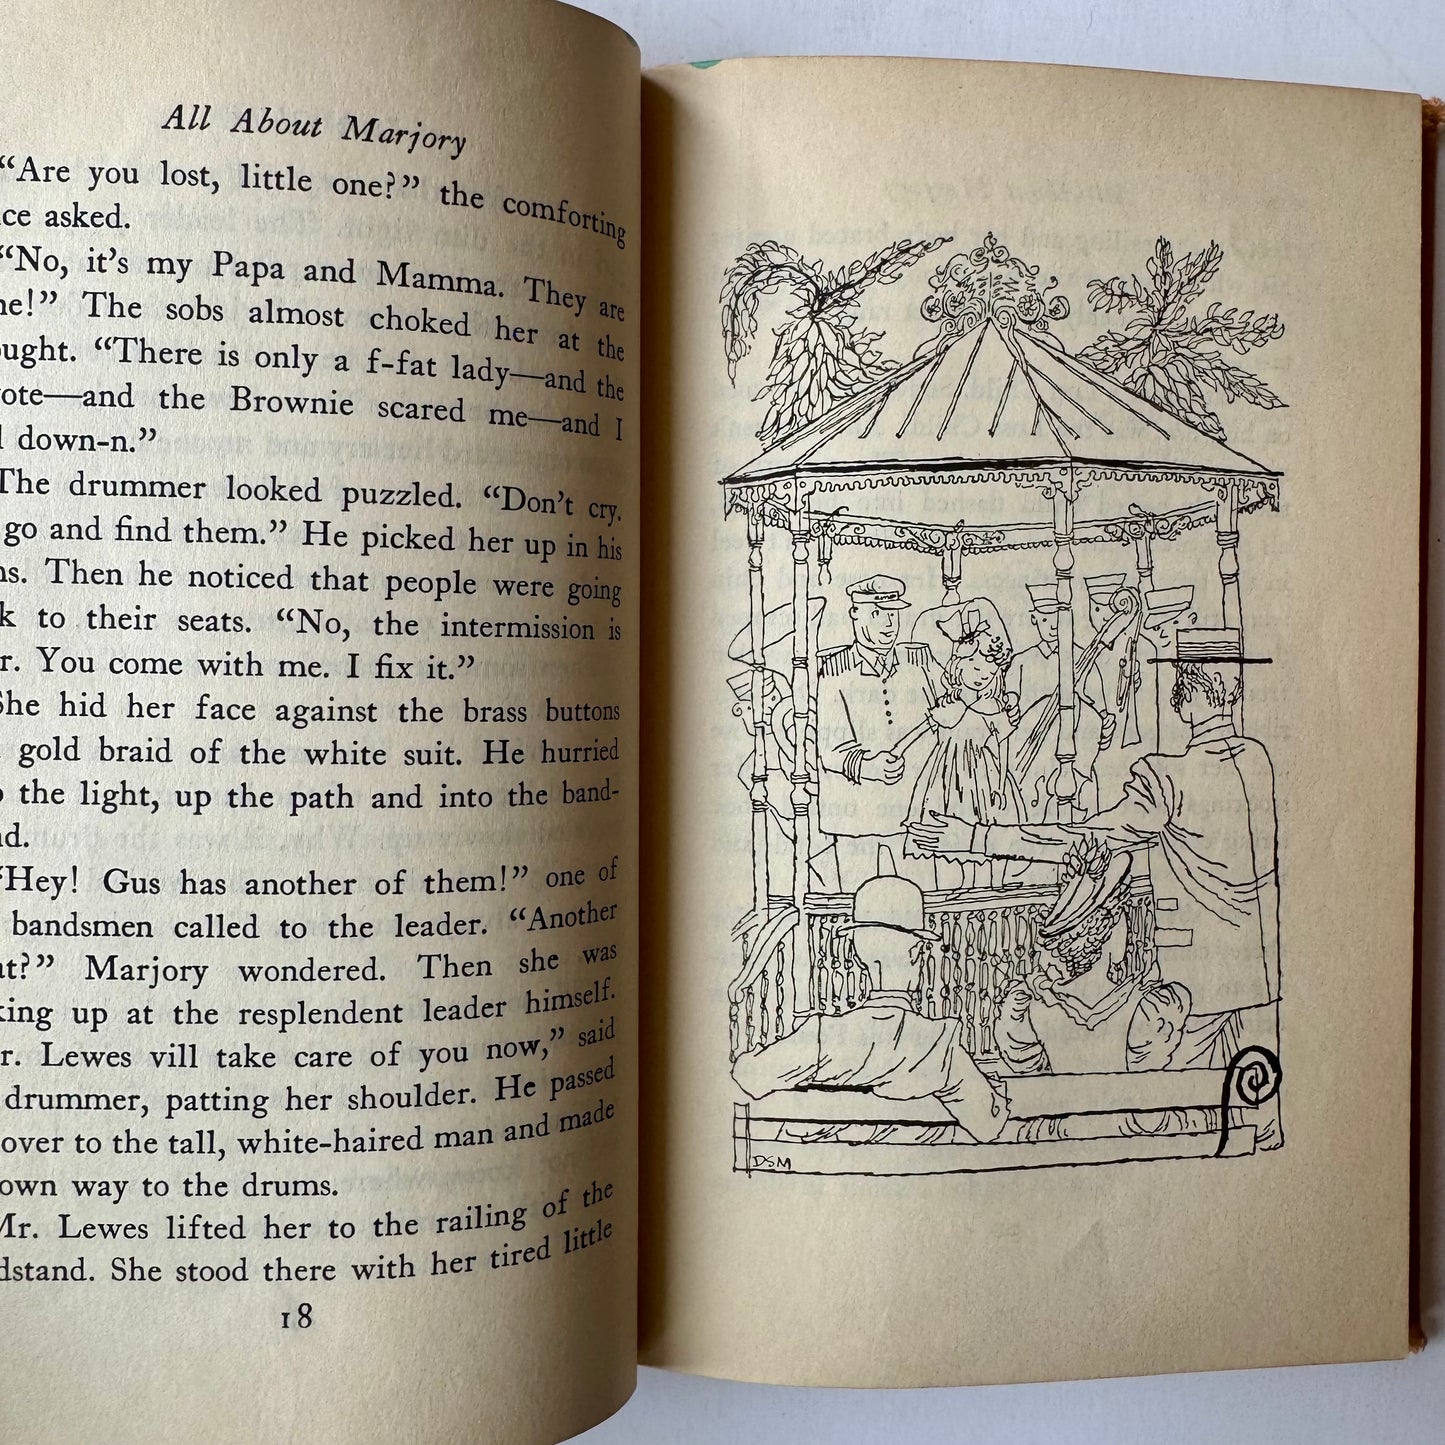 All About Marjory
“Are you lost, little one?” the comforting
ce asked.
“No, it’s my Papa and Mamma. They are
e!” The sobs almost choked her at the
ought. “There is only a f-fat lady—and the
ote—and the Brownie scared me—and I
l down-n.”
The drummer looked puzzled. “Don’t cry.
go and find them.” He picked her up in his
ns. Then he noticed that people were going
k to their seats. “No, the intermission is
r. You come with me. I fix it.”
She hid her face against the brass buttons
gold braid of the white suit. He hurried
o the light, up the path and into the band-
nd.
“Hey! Gus has another of them!” one of
bandsmen called to the leader. “Another
at?” Marjory wondered. Then she was
king up at the resplendent leader himself.
r. Lewes vill take care of you now,” said
drummer, patting her shoulder. He passed
over to the tall, white-haired man and made
own way to the drums.
Mr. Lewes lifted her to the railing of the
dstand. She stood there with her tired little
18
DSM